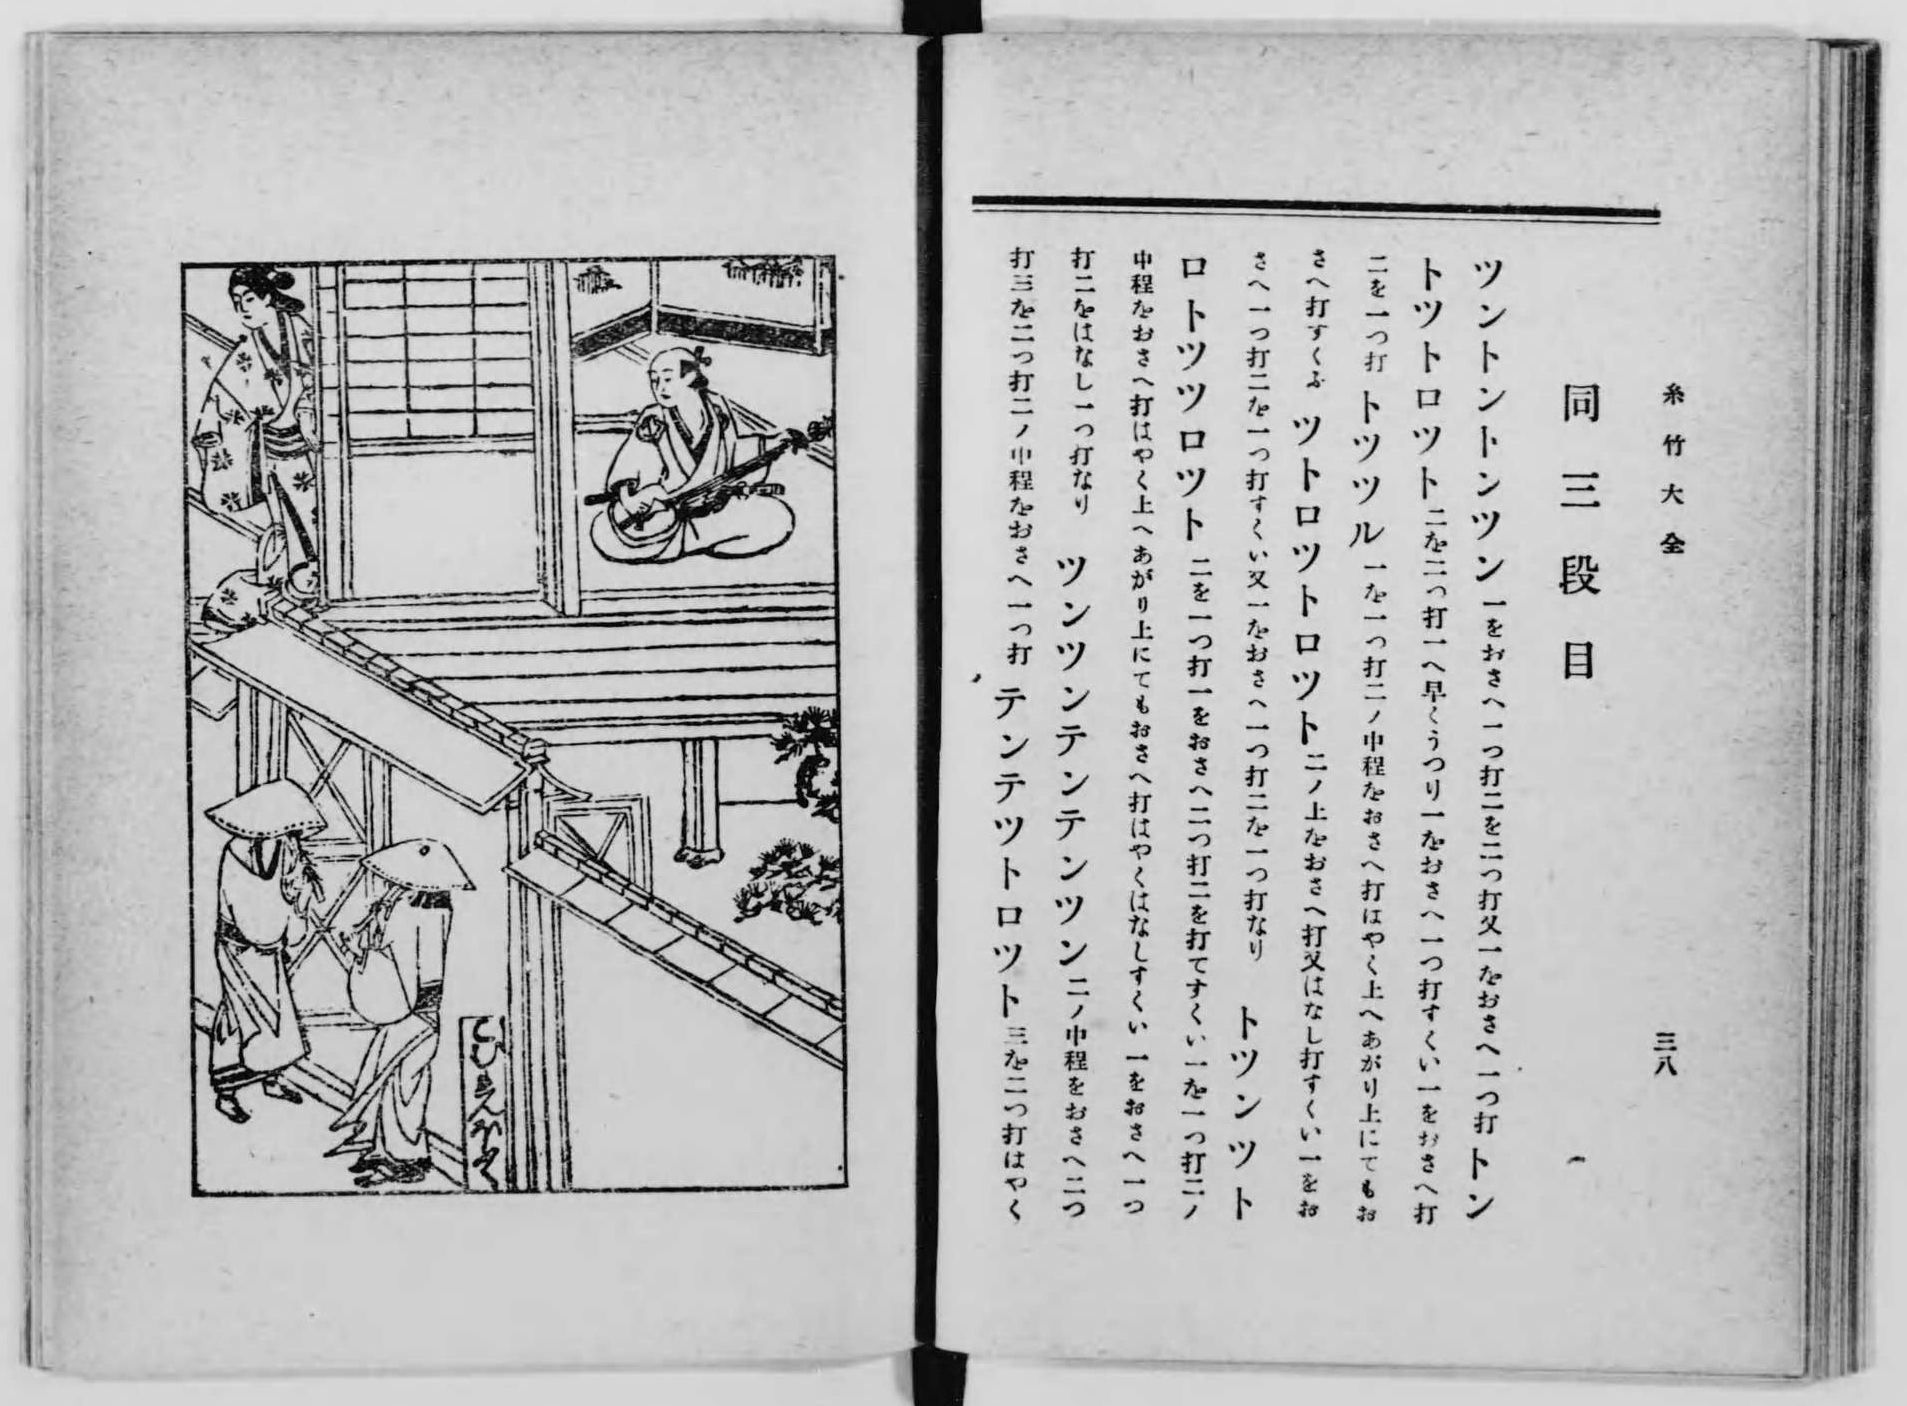 糸竹大全
三八
同三段目
ツントントンツン一をおさへ一つ打二を二つ打又一をおさへ一つ打トン
トツトロツト二を二つ打一へ早くうつり一をおさへ一つ打すくい一をおさへ打
二を一つ打トツツル一を一つ打二ノ中程をおさへ打はやく上へあがり上にてもお
さへ打すくふツトロツトロツト二ノ上をおさへ打又はなし打すくい一をお
さへ一つ打二を一つ打すくい又一をおさへ一つ打二を一つ打なりトツンツト
ロトツツロツト二を一つ打一をおさへ二つ打二を打てすくい一を一つ打二ノ
中程をおさへ打はやく上へあがり上にてもおさへ打はやくはなしすくい一をおさへ一つ
打二をはなし一つ打なりツンツンテンテンツン二ノ中程をおさへ二つ
打三を二つ打二ノ中程をおさへ一つ打テンテツトロツト三を二つ打はやく